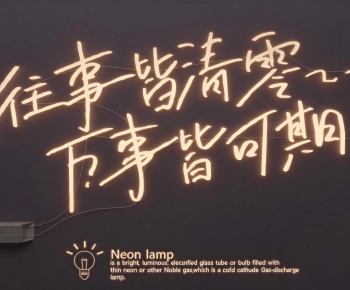 往事皆清零~~
万事皆可期
Neon lamp
is a bright, luminous, electrified glass tube or bulb filled with
thin neon or other Noble gas,which is a cold cathude Gas-discharge
lamp.